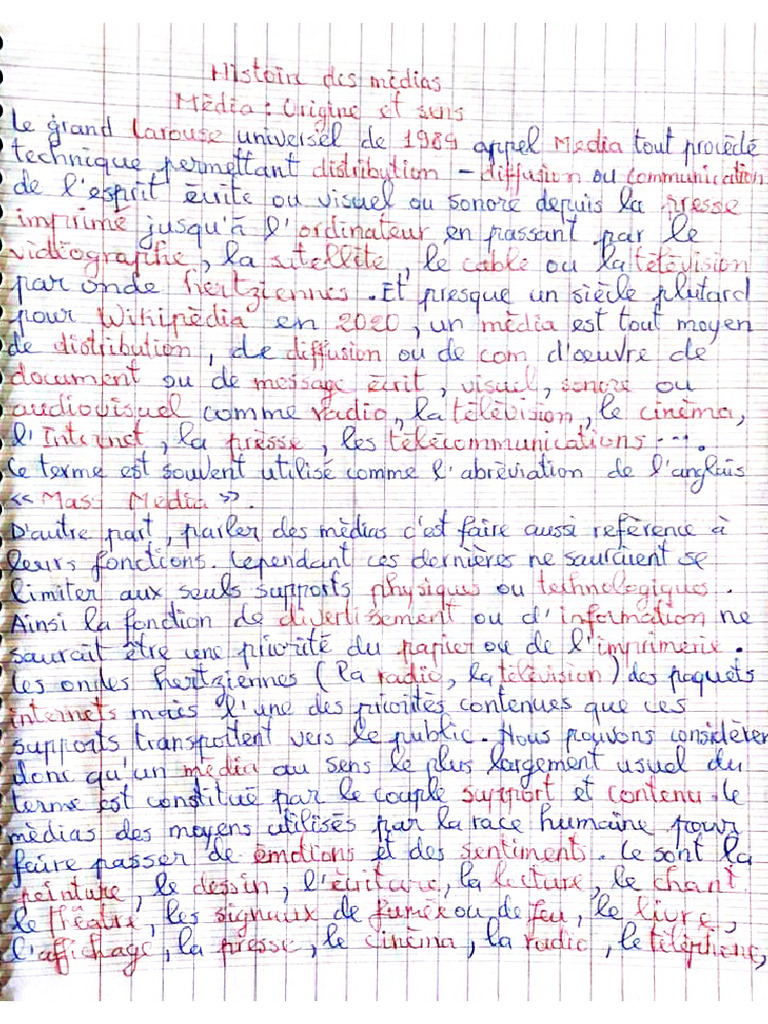 Histoire des médias
Média : Origine et sens
Le grand Larouse universel de 1984 appel Media tout procédé
technique permettant distribution - diffusion ou communication
de l'esprit écrite ou visuel ou sonore depuis la presse
imprimé jusqu'à l'ordinateur en passant par le
vidéographe, la sitellite, le cable ou la télévision
par onde hertziennes. Et presque un siècle plutard
pour Wikipédia en 2020, un média est tout moyen
de distribution, de diffusion ou de com d'oeuvre de
document ou de message écrit, visuel, sonore ou
audiovisuel comme radio, la télévision, le cinéma,
l'Internet, la presse, les télécommunications ....
Ce terme est souvent utilisé comme l'abréviation de l'anglais
<< Mass Media >>.
D'autre part, parler des médias c'est faire aussi reférence à
leurs fonctions. Cependant ces dernières ne sauraient se
limiter aux seuls supports physiques ou technologiques.
Ainsi la fonction de divertissement ou d'information ne
saurait être une priorité du papier ou de l'imprimerie.
Les ondes hertziennes (la radio, la télévision) des paquets
internets mais l'une des priorités contenues que ces
supports transpottent vers le public. Nous pouvons considérer
donc qu'un média au sens le plus largement usuel du
terme est constitué par le couple support et contenu. le
médias des moyens utilisés par la race humaine pour
faire passer de émotions et des sentiments. Ce sont la
peinture, le dessin, l'écriture, la lecture, le chant
le théatre, les signaux de fumée ou de feu, le livre,
l'affichage, la presse, le cinéma, la radio, le téléphone,